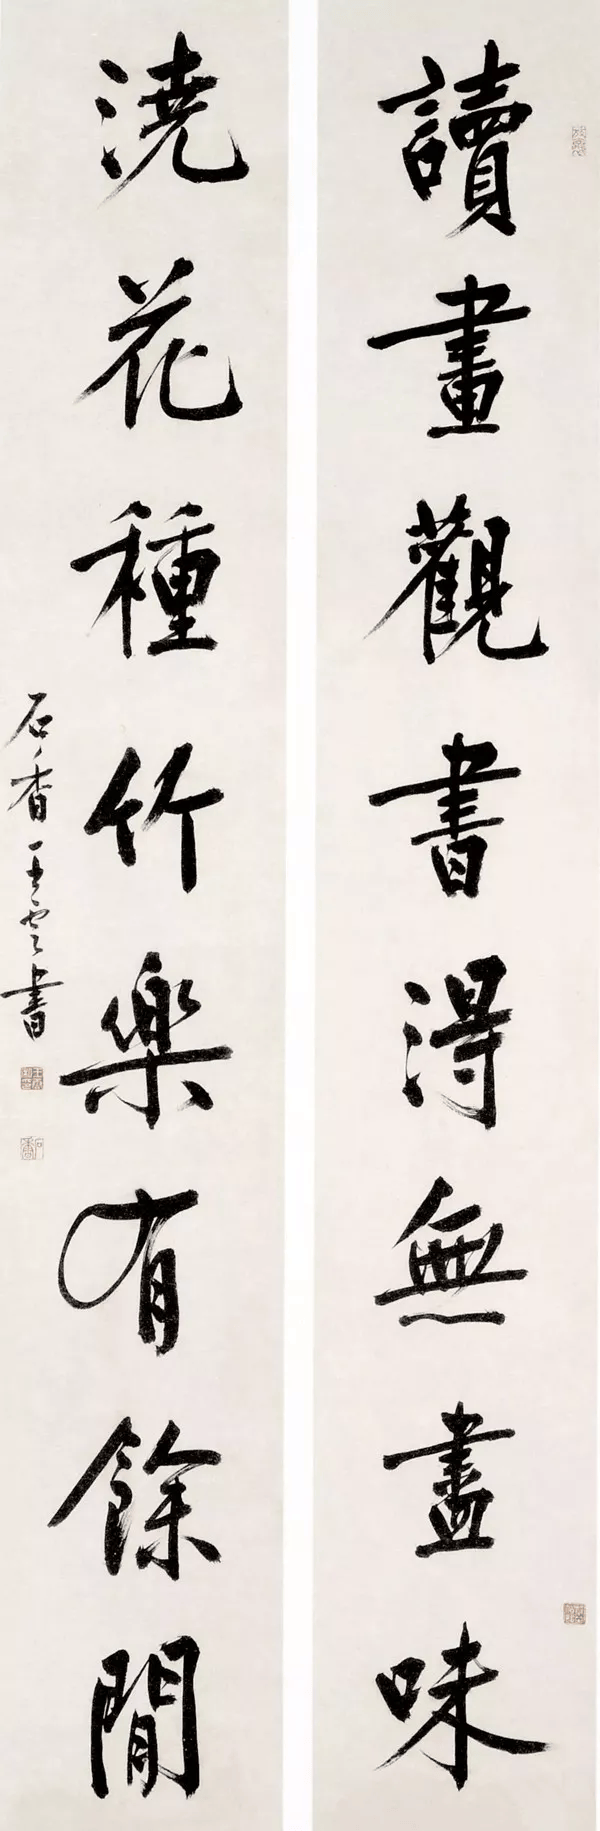 讀畫觀書得無盡味
澆花種竹樂有餘閒
石香王雲書